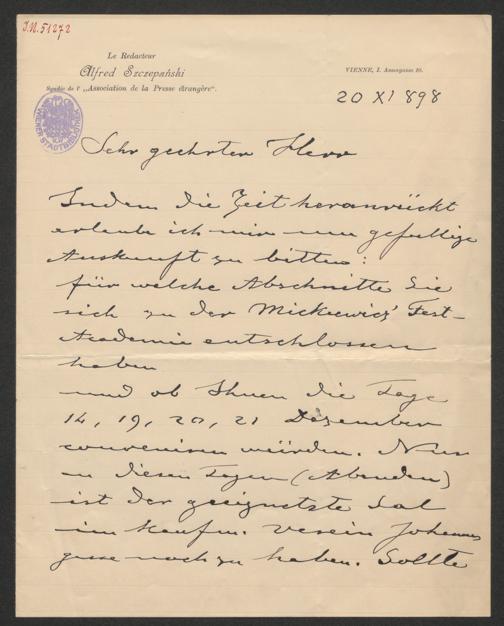 J.N. 51272
Le Redacteur
Alfred Szczepański
Syndic de l' „Association de la Presse étrangère“.
VIENNE, I. Annagasse 10.
20 XI 898
WIENER STADTBIBLIOTHEK
Sehr geehrter Herr
Indem die Zeit heranrückt
erlaube ich mir um gefällige
Auskunft zu bitten:
für welche Abschnitte Sie
sich zu der Mickiewicz' Fest-
Academie entschlossen
haben
und ob Ihnen die Tage
14, 19, 20, 21 Dezember
conveniren würden. Nur
an diesen Tagen (Abenden)
ist der geeignetste Sal
im Kaufm. Verein Johannes
gasse noch zu haben. Sollte